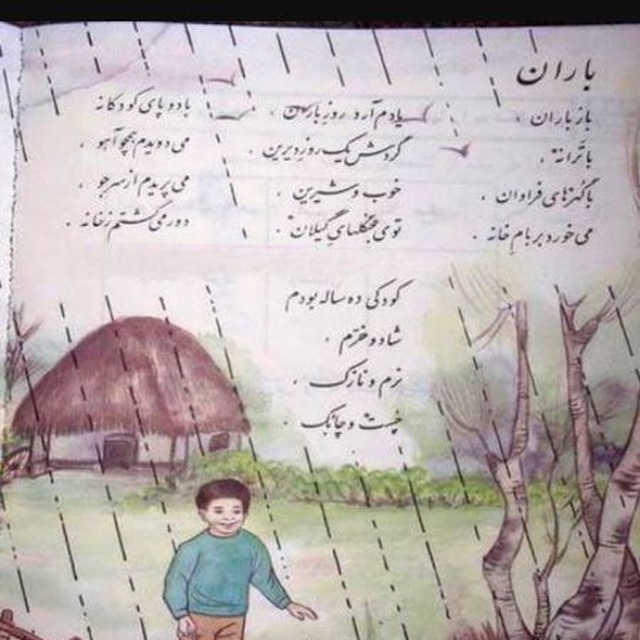 باران
باز باران،
با ترانه،
با گهرهای فراوان،
می خورد بر بام خانه.
یادم آرد روز باران،
گردش یک روز دیرین،
خوب و شیرین،
توی جنگلهای گیلان.
کودکی ده ساله بودم
شاد و خرّم،
نرم و نازک،
چُست و چابک.
با دو پای کودکانه
می دویدم همچو آهو،
می پریدم از سر جو،
دور می گشتم ز خانه.